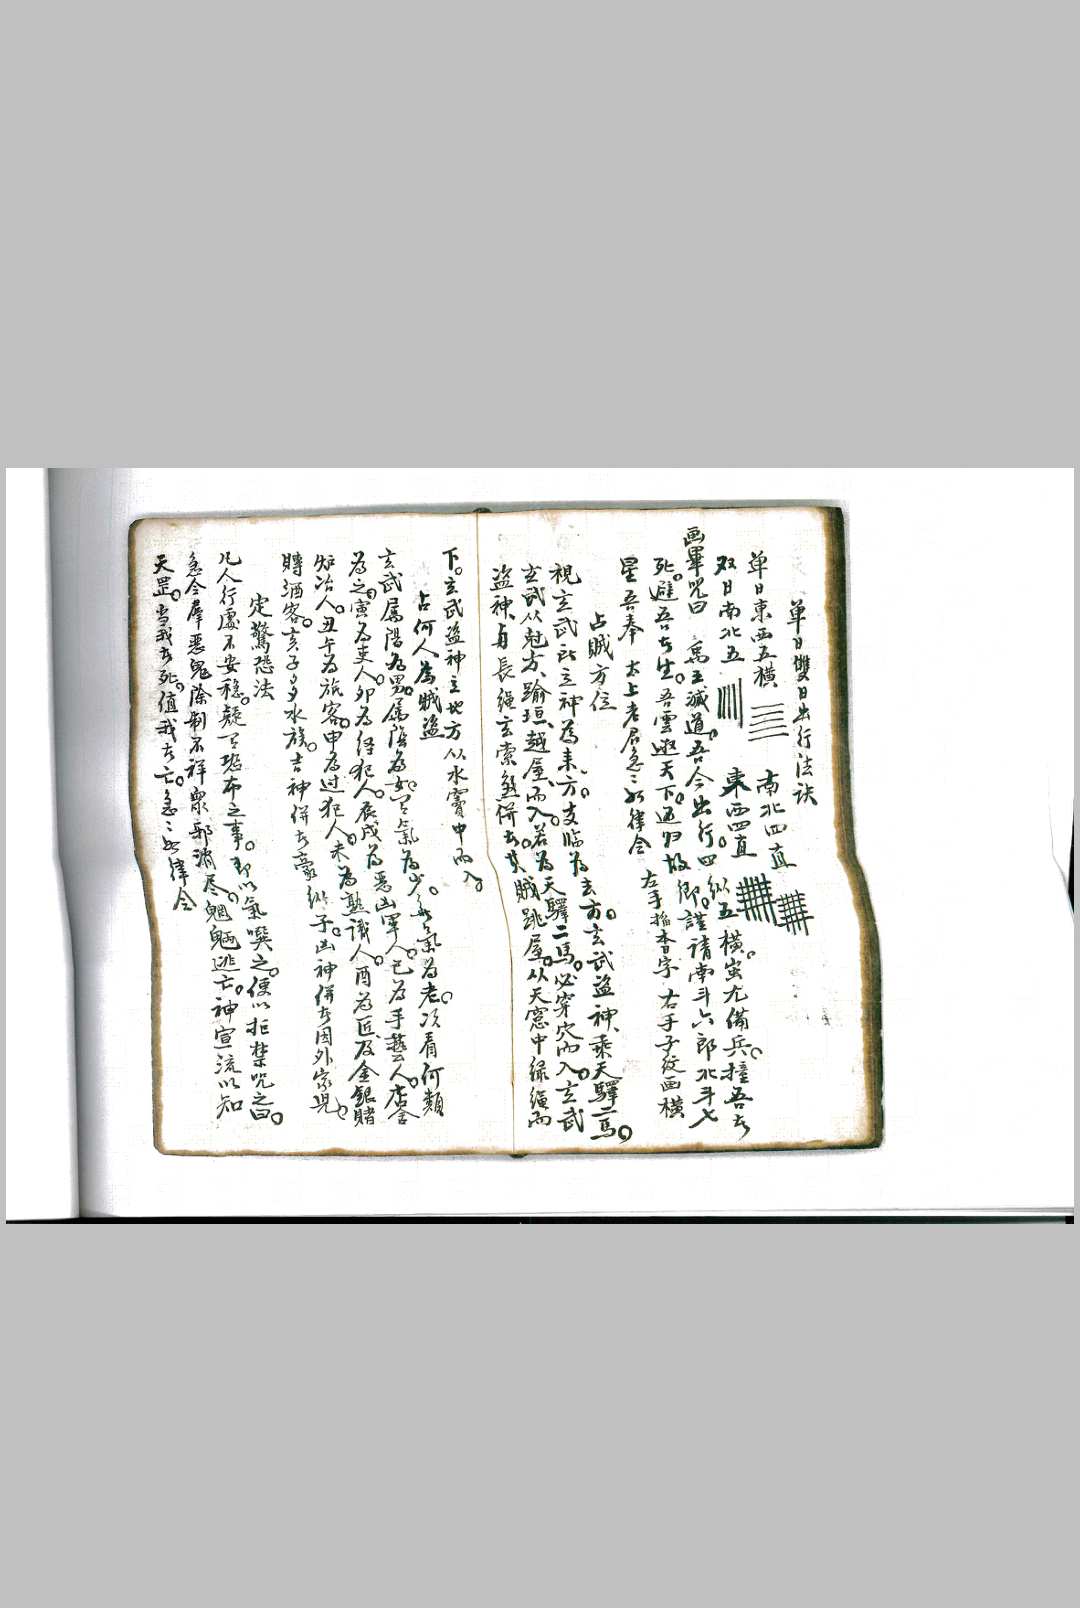 單日雙日出行法訣
单日東西五橫 南北四直
双日南北五 東西四直
画畢咒曰 禹王滅道。吾今出行。四縱五橫。蚩尤備兵。撞吾者
死。避吾者生。吾雲遊天下。返归故鄉。謹請南斗六郎北斗七
星吾奉 太上老君急〻如律令 左手掐本字 右手子纹画橫
占賊方位
視玄武所立神為来方。支临為去方。玄武盗神、乘天驛二馬。
玄武从尅方、踰垣、越屋、而入。若為天驛二馬。必穿穴而入。玄武
盗神、身長绳玄索煞併者。其賊跳屋。从天窓中緑繩而
下。玄武盗神立地方以水竇中而入。
占何人為賊盗
玄武属陽為男。属陰為女。旺氣為少。氣為老。次看何類
為之。寅為吏人。卯為経犯人。辰戌為惡凶軍人。巳為手藝人。店舍
炉冶人。丑午為旅客。申為过犯人。未為熟識人。酉為匠及金銀賭
賻酒客。亥子多水族。吉神併者豪纵子。凶神併者因外家児。
定驚恐法
凡人行處不安穏。疑有恐怖之事。即以氣噀之。便以拒禁咒之曰。
急令羣惡鬼除制不祥衆邪消尽。魍魎逃亡。神宣流以知
天罡。当我者死。值我者亡。急〻如律令